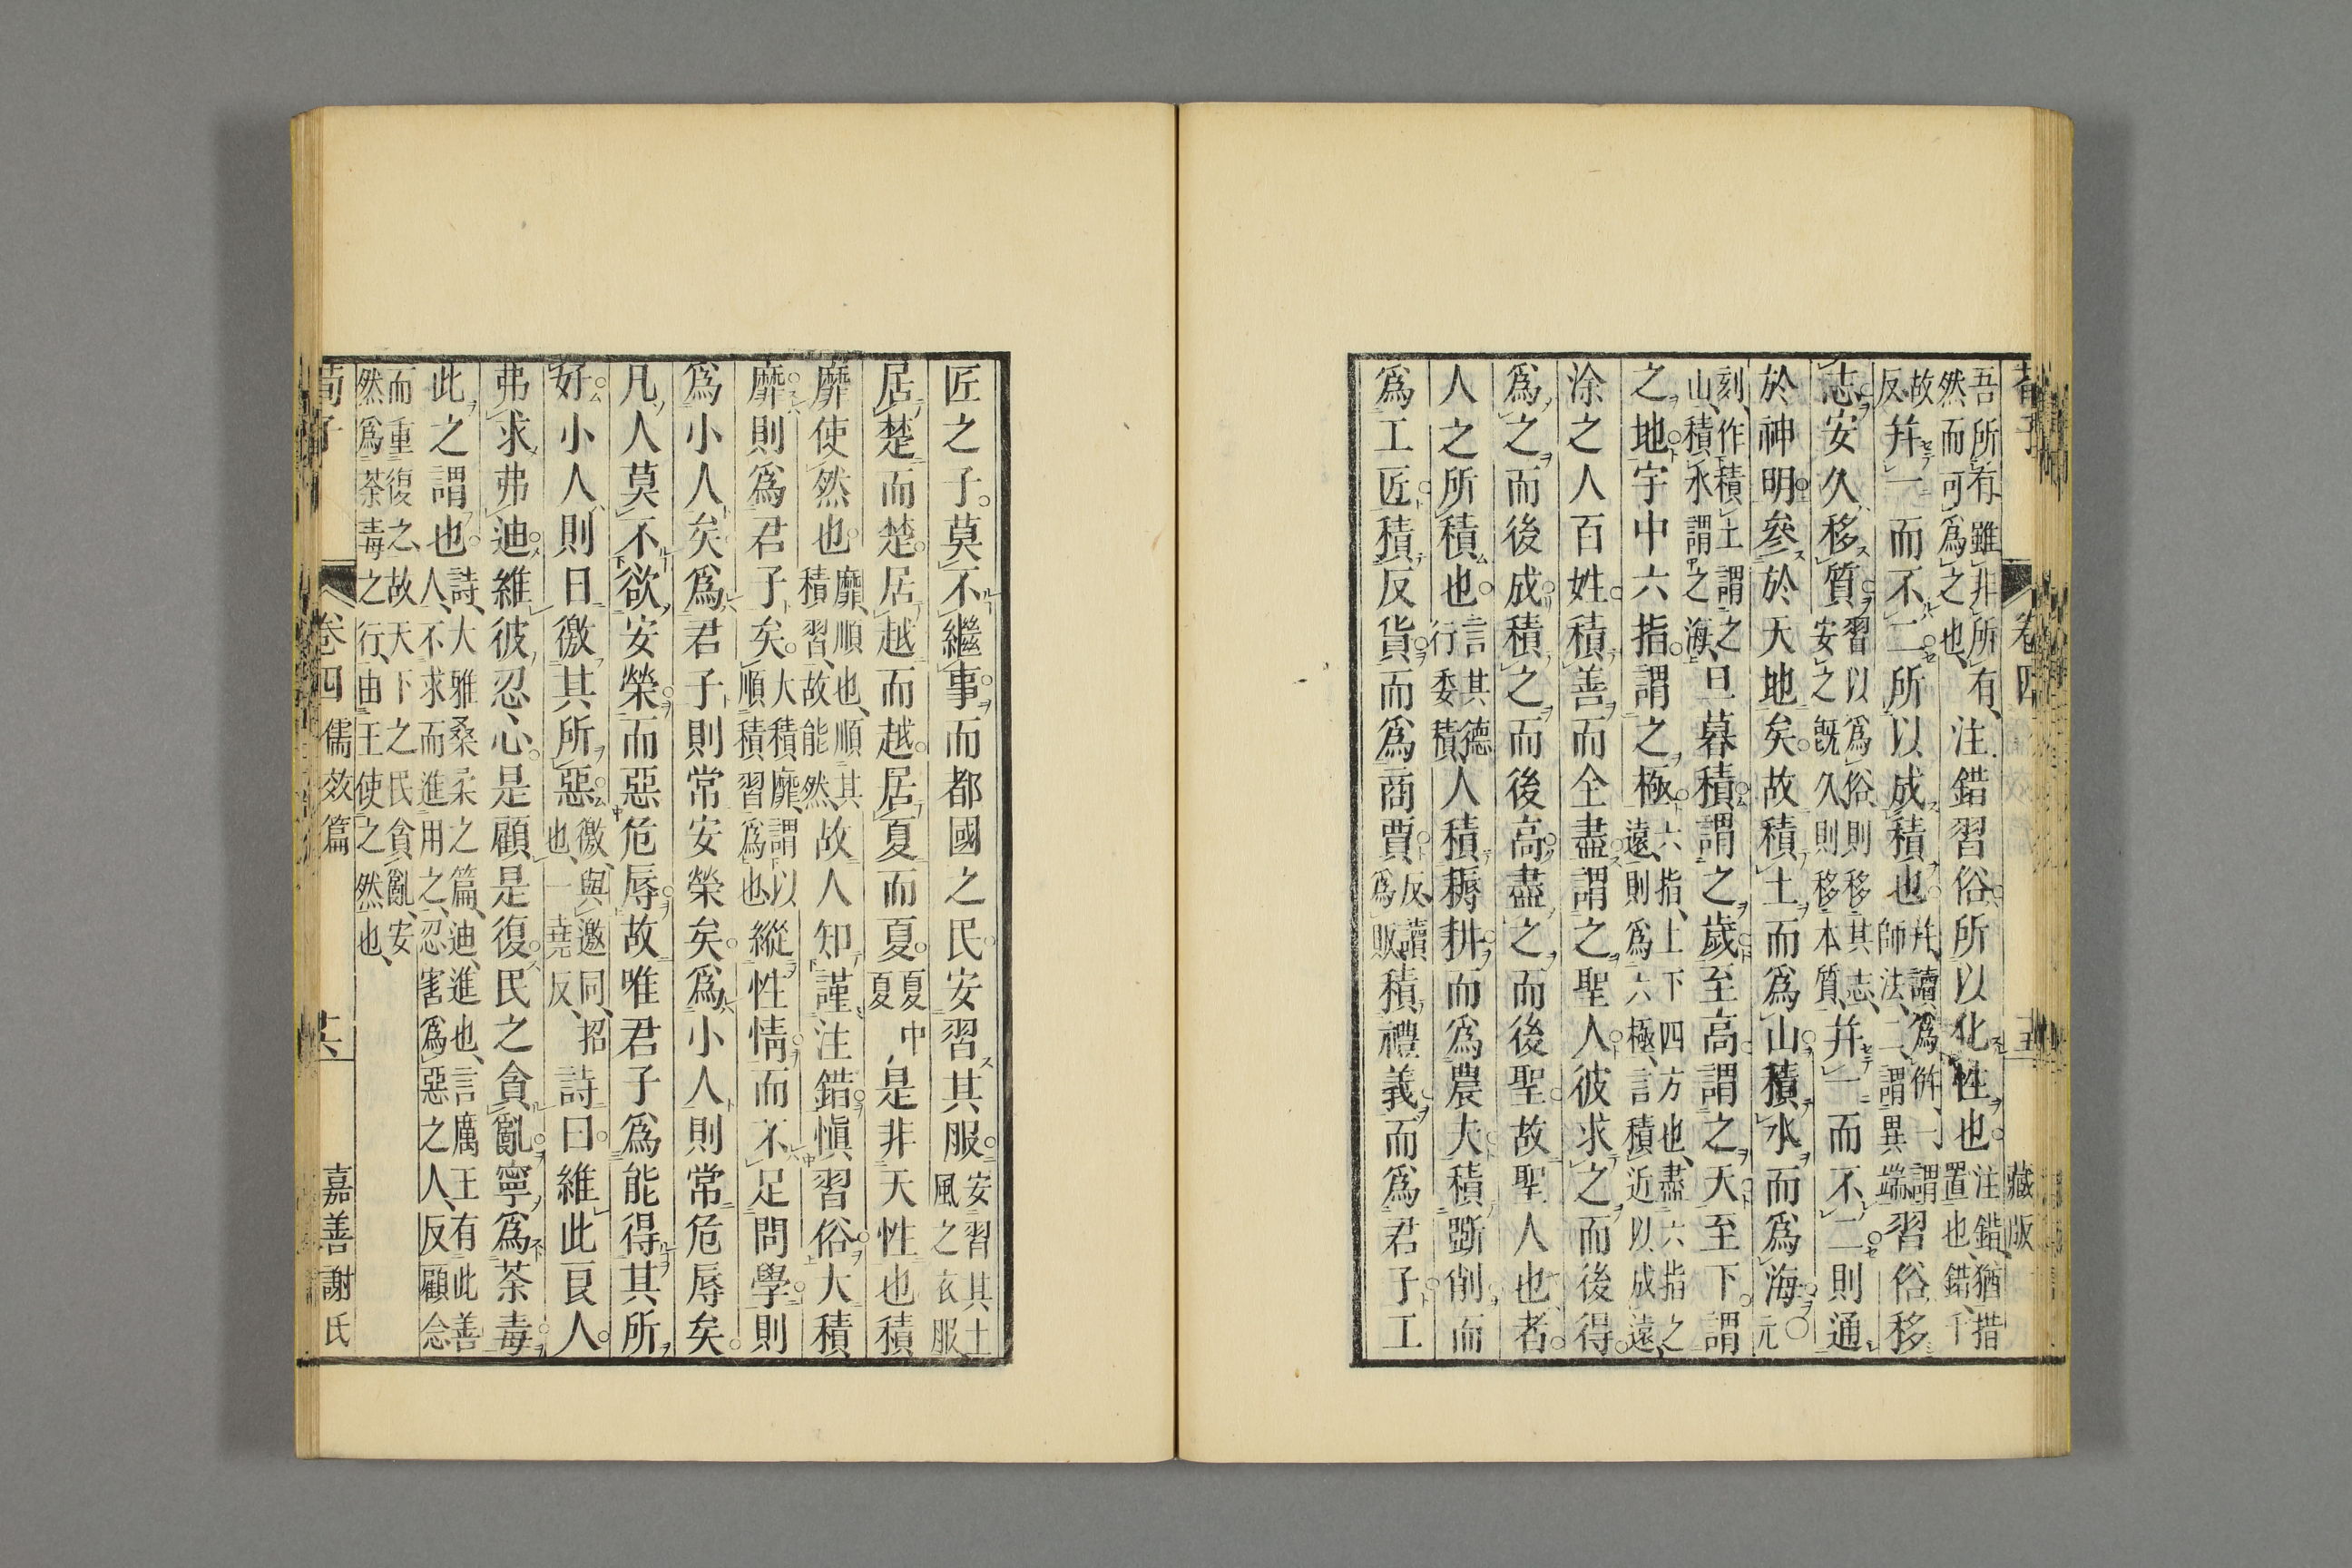 吾所有雖非所有、注錯習俗所以化性也注錯、猶措
然而可爲之也、置也、錯、千
故反幷一而不二所以成積也幷、讀爲倂、一謂師法、二謂異端習俗移
志安久移質習以爲俗、則移其志、安之旣久則移本質、幷一而不二則通
於神明參於天地矣故積土而爲山積水而爲海元
刻、作積土謂之山、積水謂之海、旦暮積謂之歲至高謂之天至下謂
之地宇中六指謂之極六指、上下四方也、盡六指之遠、則爲六極、言積近以成遠、
涂之人百姓積善而全盡謂之聖人彼求之而後得
爲之而後成積之而後高盡之而後聖故聖人也者
人之所積也言其德行委積人積耨耕而爲農夫積斲削而
爲工匠積反貨而爲商賈反、讀爲販積禮義而爲君子工
卷四
藏版
匠之子莫不繼事而都國之民安習其服安習其土風之衣服
居楚而楚居越而越居夏而夏夏中夏是非天性也積
靡使然也靡、順也、順其積習、故能然、故人知謹注錯愼習俗大積
靡則爲君子矣大積靡、謂以順積習爲也縱性情而不足問學則
爲小人矣爲君子則常安榮矣爲小人則常危辱矣
凡人莫不欲安榮而惡危辱故唯君子爲能得其所
好小人則日徼其所惡徼、與邀同、招也、一堯反、詩曰維此良人
弗求弗迪維彼忍心是顧是復民之貪亂寧爲荼毒
此之謂也詩、大雅桑柔之篇、迪、進也、言厲王有此善人、不求而進用之、忍害爲惡之人、反顧念
而重復之、故天下之民貪亂、安然爲荼毒之行、由王使之然也、
荀子
卷四
儒效篇
嘉善謝氏